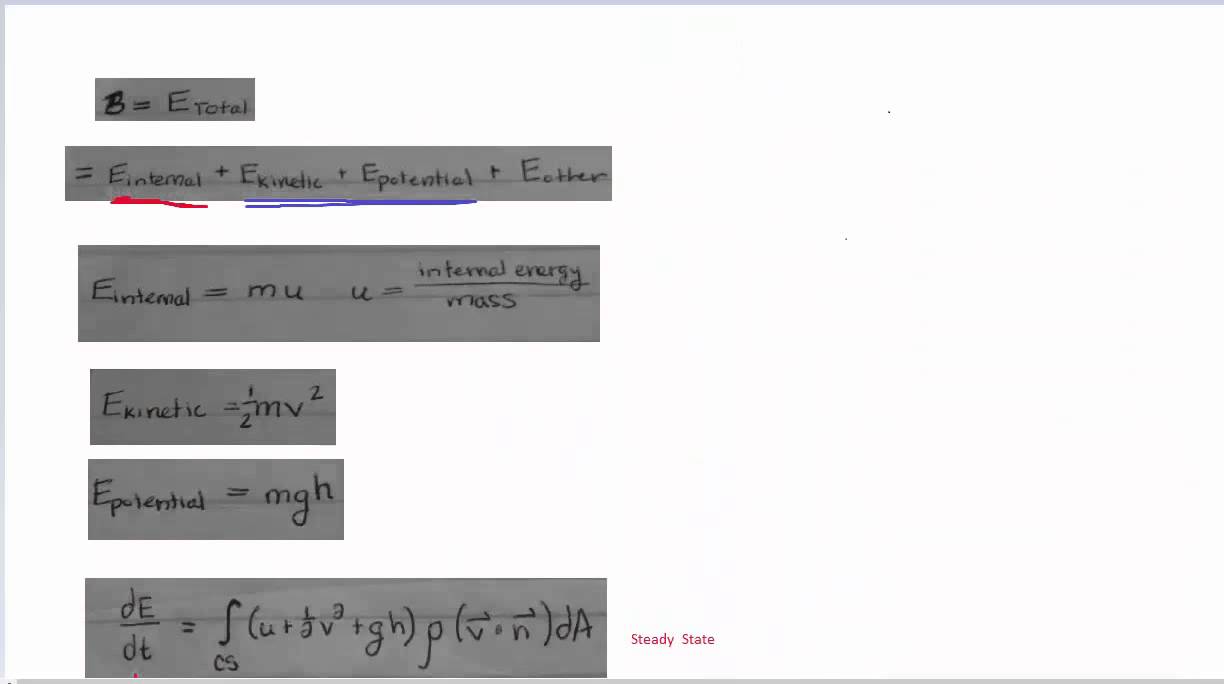 B = E Total
= Einternal + Ekinetic + Epotential + Eother
Einternal = mu u = internal energy / mass
Ekinetic = 1/2 mv²
Epotential = mgh
dE/dt = ∫cs (u + 1/2 v² + gh) ρ (v⃗ • n⃗) dA
Steady State